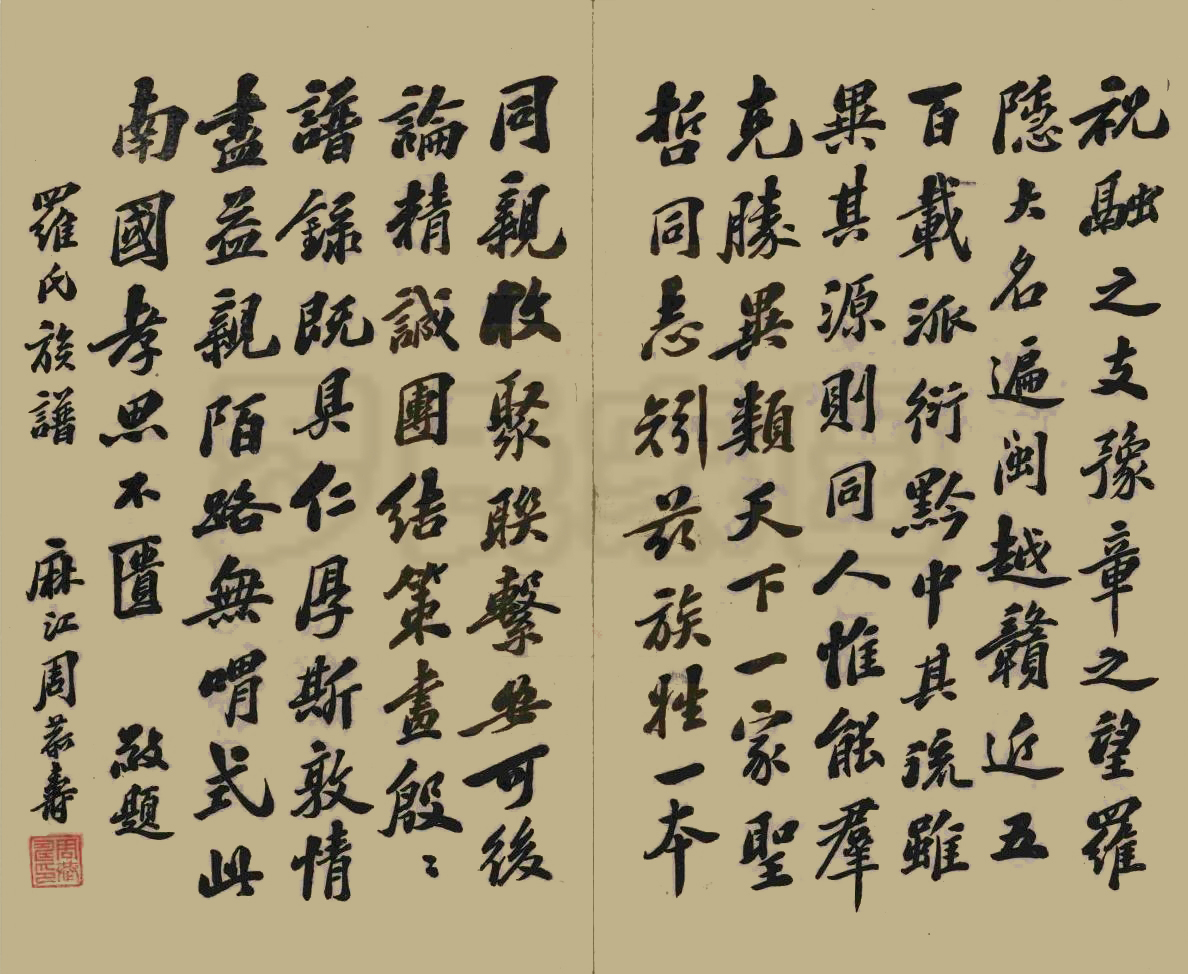 祝融之支豫章之望羅
隱大名遍閩越贛近五
百載派衍黔中其流雖
異其源則同人惟能羣
克勝異類天下一家聖
哲同志矧茲族姓一本
同親收聚聯繫安可後
論精誠團結策畫殷〻
譜錄既具仁厚斯敦情
盡益親陌路無喟式此
南國孝思不匱 敬題
羅氏族譜 麻江周恭壽